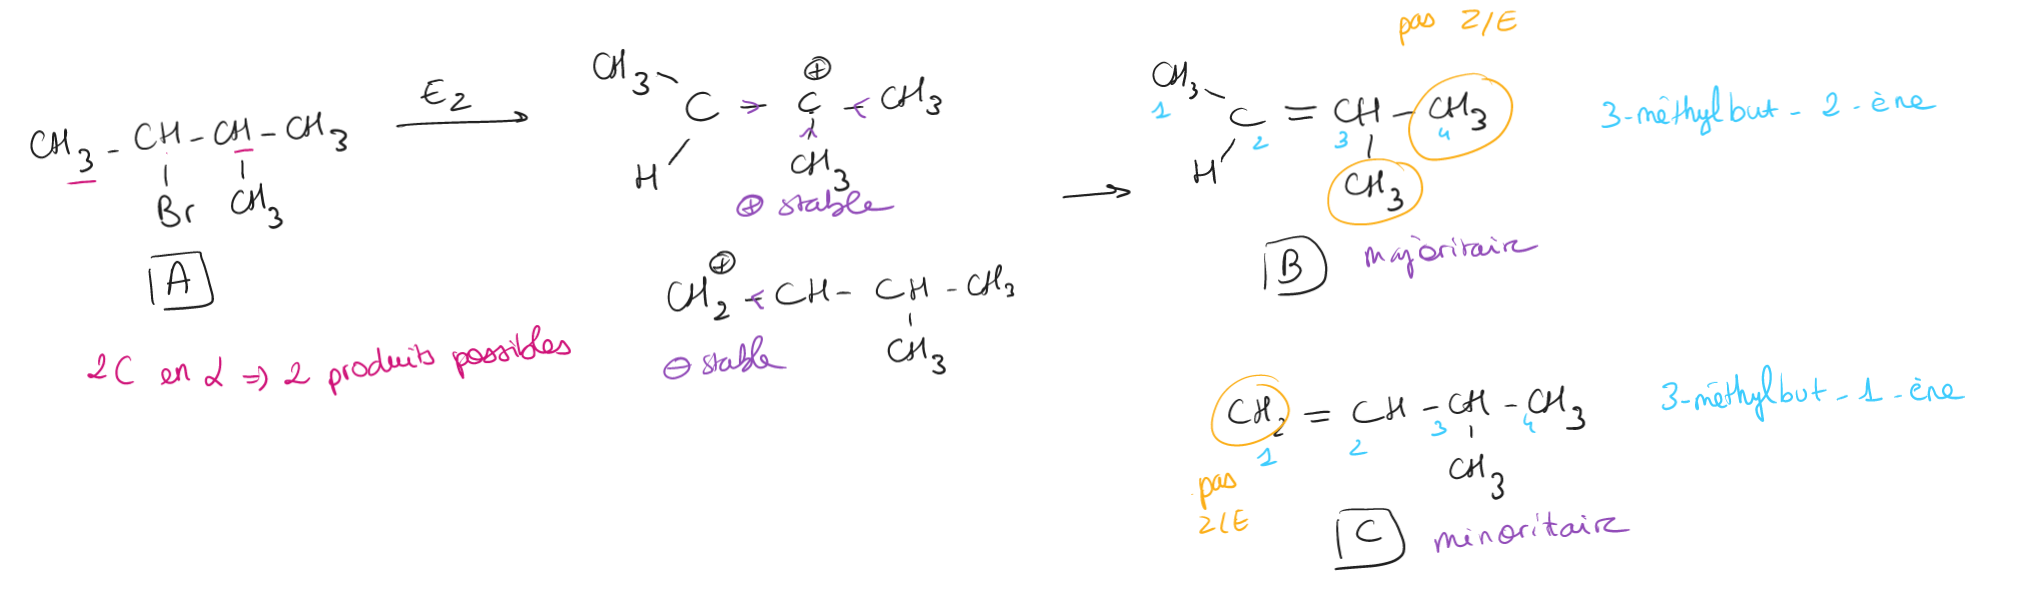 pas Z/E
CH3 - CH - CH - CH3
Br CH3
A
E2
CH3
C C CH3
H CH3
⊕
⊕ stable
CH2 CH - CH - CH3
⊕
CH3
⊖ stable
2C en α => 2 produits possibles
CH3
1
C = CH - CH3
2 3 4
H CH3
B majoritaire
3-méthylbut-2-ène
CH2 = CH - CH - CH3
1 2 3 4
CH3
pas
Z/E
C minoritaire
3-méthylbut-1-ène